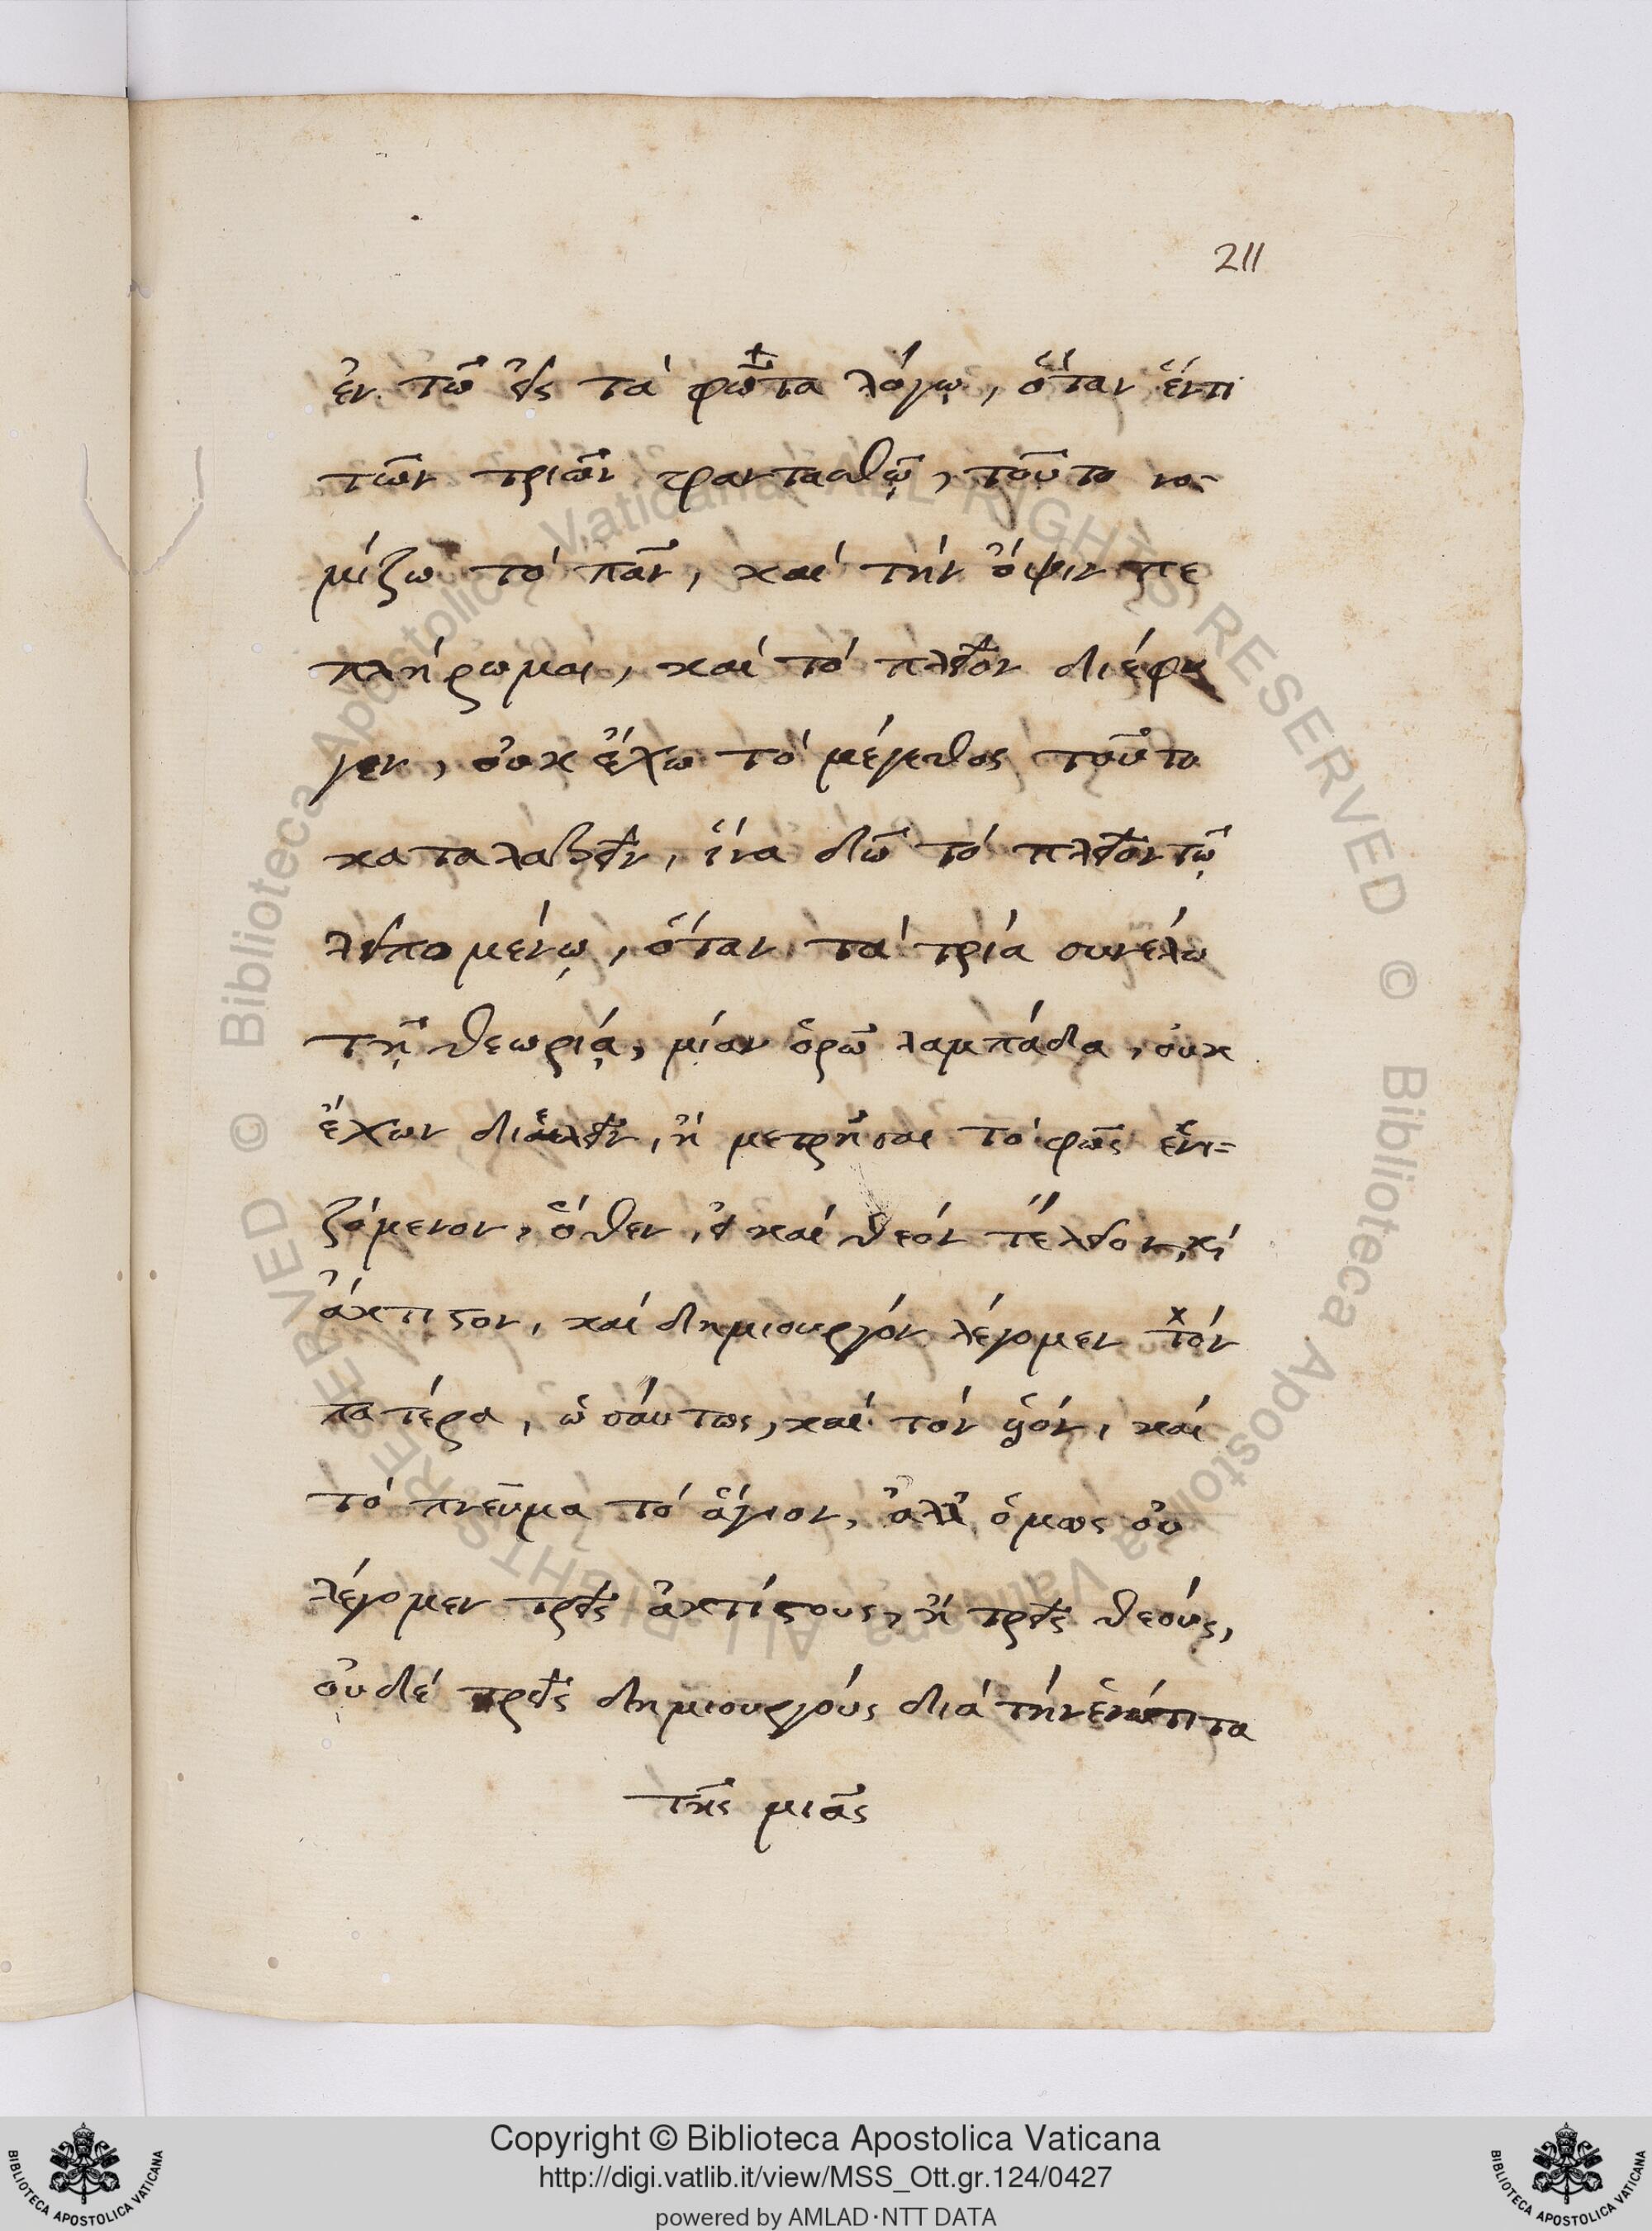 211
ἐν τῶ εἰς τὰ φῶτα λόγω, ὅταν ἕν τι
τῶν τριῶν φαντασθῶ, τοῦτο νο-
μίζω τὸ πᾶν, καὶ τὴν ὄψιν πε
πλήρωμαι, καὶ τὸ πλεῖον διέφυ
γεν, οὐκ ἔχω τὸ μέγεθος τοῦτο
καταλαβεῖν, ἵνα δῶ τὸ πλεῖον τῷ
λειπομένῳ, ὅταν τὰ τρία συνέλω
τῇ θεωρίᾳ, μίαν ὁρῶ λαμπάδα, οὐκ
ἔχων διελεῖν, ἢ μετρῆσαι τὸ φῶς ἑνι=
ζόμενον, ὅθεν, εἰ καὶ θεὸν τέλειον, κ,
ἄκτιστον, καὶ δημιουργὸν λέγομεν τὸν
πατέρα, ὡσάυτως, καὶ τὸν ὑιόν, καὶ
τὸ πνεῦμα τὸ ἅγιον, ἀλλ' ὅμως οὐ
λέγομεν τρεῖς ἀκτίστους, ἢ τρεῖς θεούς,
οὐδὲ τρεῖς δημιουργούς διὰ τὴν ἑνότητα
τῆς μιᾶς
Biblioteca Apostolica Vaticana ALL RIGHTS RESERVED ©
Biblioteca Apostolica Vaticana ALL RIGHTS RESERVED ©
Copyright © Biblioteca Apostolica Vaticana
http://digi.vatlib.it/view/MSS_Ott.gr.124/0427
powered by AMLAD·NTT DATA
BIBLIOTECA APOSTOLICA VATICANA
BIBLIOTECA APOSTOLICA VATICANA